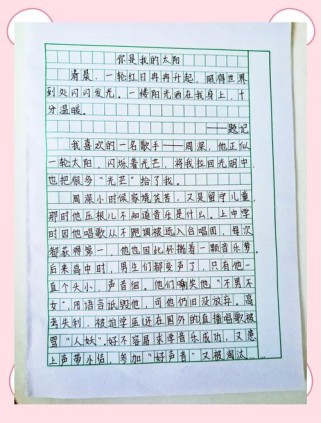 你是我的太阳
清晨，一轮红日冉冉升起，照得世界
到处闪闪发光。一缕阳光洒在我身上，十
分温暖。
——题记
我喜欢的一名歌手——周深，他正似
一轮太阳，闪烁着光芒，将我拉回光明中，
也把很多“光芒”给了我。
周深小时候家境贫苦，又是留守儿童，
那时他压根儿不知道音乐是什么。上中学
时因他唱歌从不跑调被选入合唱团，每次
都获师第一，他也因此怀揣着一颗音乐梦
后来高中时，男生们都变声了，只有他一
直个头小，声音细。他们嘲笑他“不男不
女”，用语言诋毁他，可他仍旧没放弃。高
考失利，被迫学医还在国外的直播唱歌被
骂“人妖”，好不容易求学音乐成功，又患
上声带小结，参加“好声音”又被淘汰